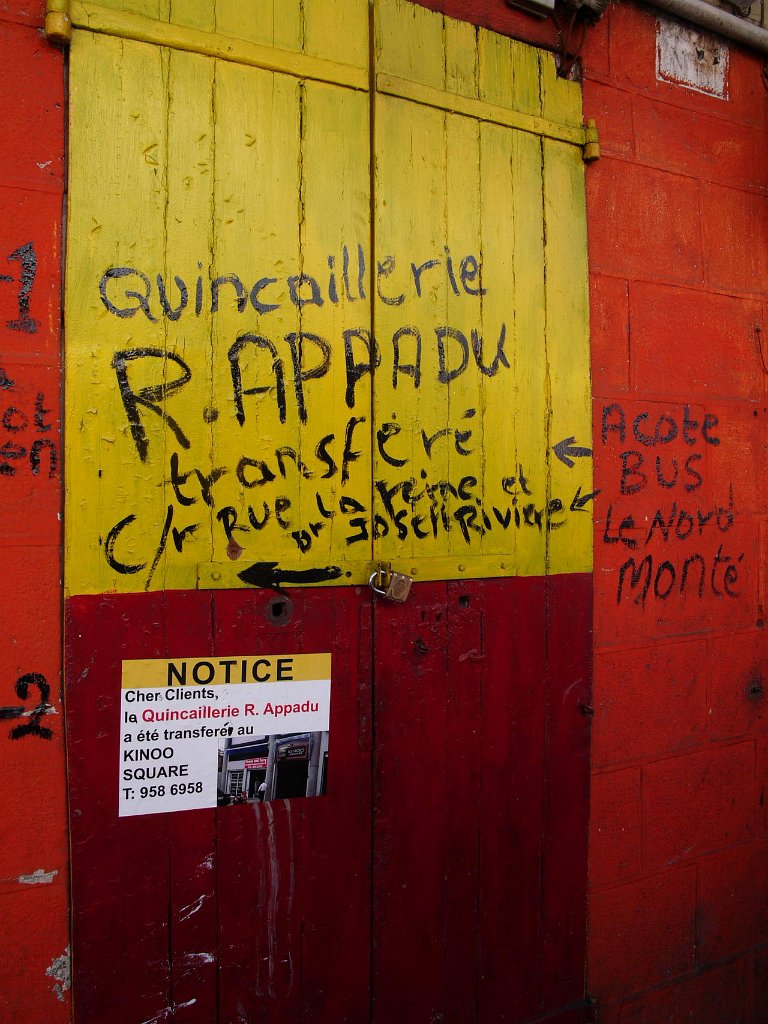 Quincaillerie
R. APPADU
transféré
C/r Rue La reine et
Dr Joseh Riviere
Acote
BUS
Le Nord
Monté
1
2
NOTICE
Cher Clients,
la Quincaillerie R. Appadu
a été transferér au
KINOO
SQUARE
T: 958 6958
KINOO